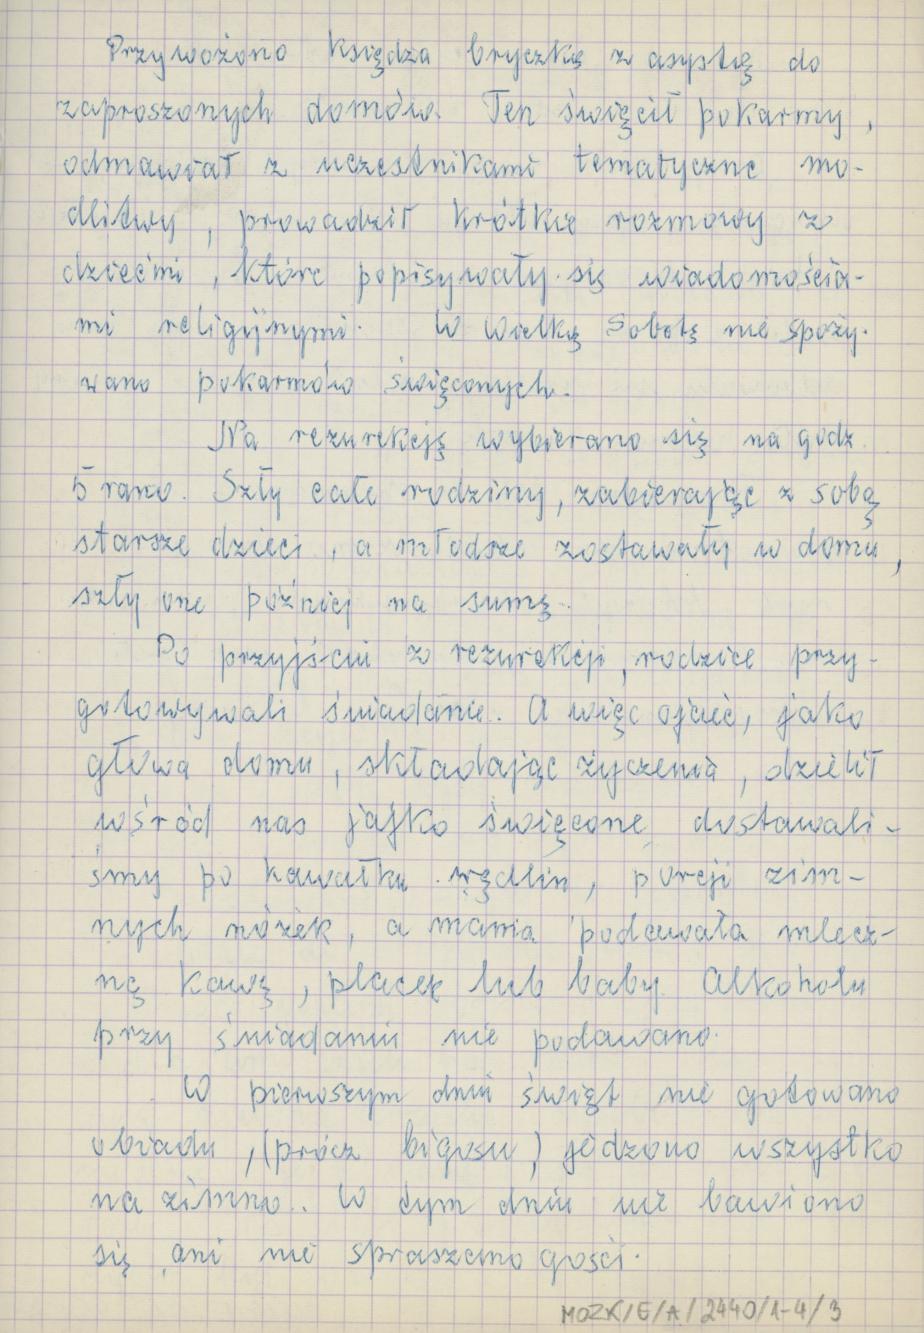 Przywożono księdza bryczką z asystą do
zaproszonych domów. Ten święcił pokarmy,
odmawiał z uczestnikami tematyczne mo-
dlitwy, prowadził krótkie rozmowy z
dziećmi, które popisywały się wiadomościa-
mi religijnymi. W Wielką Sobotę nie spoży-
wano pokarmów święconych.
Na rezurekcję wybierano się na godz.
5 rano. Szły całe rodziny, zabierając z sobą
starsze dzieci, a młodsze zostawały w domu,
szły one później na sumę.
Po przyjściu z rezurekcji, rodzice przy-
gotowywali śniadanie. A więc ojciec, jako
głowa domu, składając życzenia, dzielił
wśród nas jajko święcone, dostawali-
śmy po kawałku wędlin, porcji zim-
nych nóżek, a mama podawała mlecz-
ną kawę, placek lub baby. Alkoholu
przy śniadaniu nie podawano.
W pierwszym dniu świąt nie gotowano
obiadu, (prócz bigosu) jedzono wszystko
na zimno.. W tym dniu nie bawiono
się, ani nie spraszano gości.
MOZK/E/A/2440/1-4/3